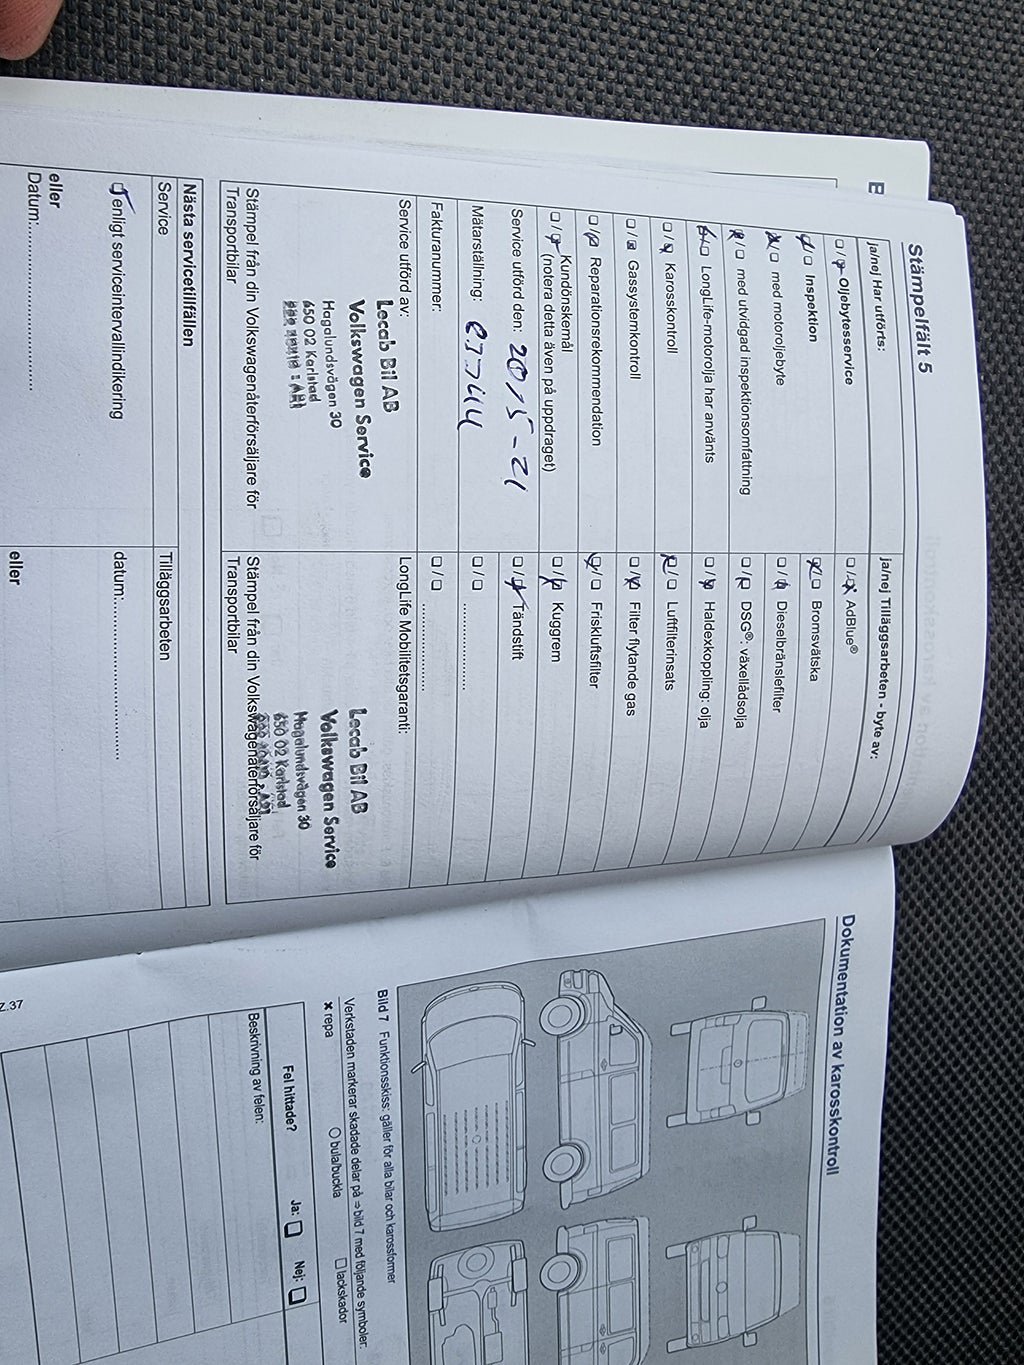 Stämpelfält 5
ja/nej Har utförts:
/ Oljebytesservice
/ Inspektion
/ med motoroljebyte
/ med utvidgad inspektionsomfattning
/ LongLife-motorolja har använts
/ Karosskontroll
/ Gassystemkontroll
/ Reparationsrekommendation
/ Kundönskemål
(notera detta även på uppdraget)
Service utförd den:
Mätarställning:
Fakturanummer:
Service utförd av:
Lecab Bil AB
Volkswagen Service
Hagalundsvägen 30
650 02 Karlstad
Stämpel från din Volkswagenåterförsäljare för
Transportbilar
ja/nej Tilläggsarbeten - byte av:
/ AdBlue®
/ Bromsvätska
/ Dieselbränslefilter
/ DSG®: växellådsolja
/ Haldexkoppling: olja
/ Luftfilterinsats
/ Filter flytande gas
/ Friskluftsfilter
/ Kuggrem
/ Tändstift
/ ....................
/ ....................
LongLife Mobilitetsgaranti:
Lecab Bil AB
Volkswagen Service
Hagalundsvägen 30
650 02 Karlstad
Stämpel från din Volkswagenåterförsäljare för
Transportbilar
Nästa servicetillfällen
Service
enligt serviceintervallindikering
eller
Datum:..............................
Tilläggsarbeten
datum:..............................
eller
Dokumentation av karosskontroll
Bild 7 Funktionsskiss: gäller för alla bilar och karossformer
Verkstaden markerar skadade delar på ⇒ bild 7 med följande symboler:
× repa
○ bula/buckla
□ lackskador
Fel hittade?
Ja:
Nej:
Beskrivning av felen: